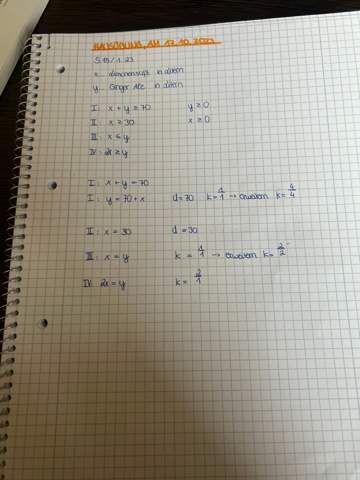 HAUSÜBUNG, AM 17.10.2023
S.15/1.23
x... Limonensaft in Litern
y... Ginger Ale in Litern
I: x + y ≤ 70 y ≥ 0
II: x ≥ 30 x ≥ 0
III: x ≤ y
IV: 2x ≥ y
I: x + y = 70
I: y = 70 + x d = 70 k = 1/1 → erweitern k = 4/4
II: x = 30 d = 30
III: x = y k = 1/1 → erweitern k = 2/2
IV: 2x = y k = 2/1